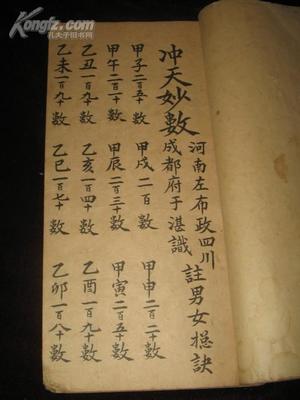 Kongfz.com
孔夫子旧书网
冲天妙數
河南左布政四川
成都府于湛識
註男女捴訣
甲子二百五十數 甲戌一百數 甲申二百二十數
甲午二百一十數 甲辰二百三十數 甲寅二百五十數
乙丑一百九十數 乙亥一百四十數 乙酉一百九十數
乙未一百九十數 乙巳一百七十數 乙卯一百八十數